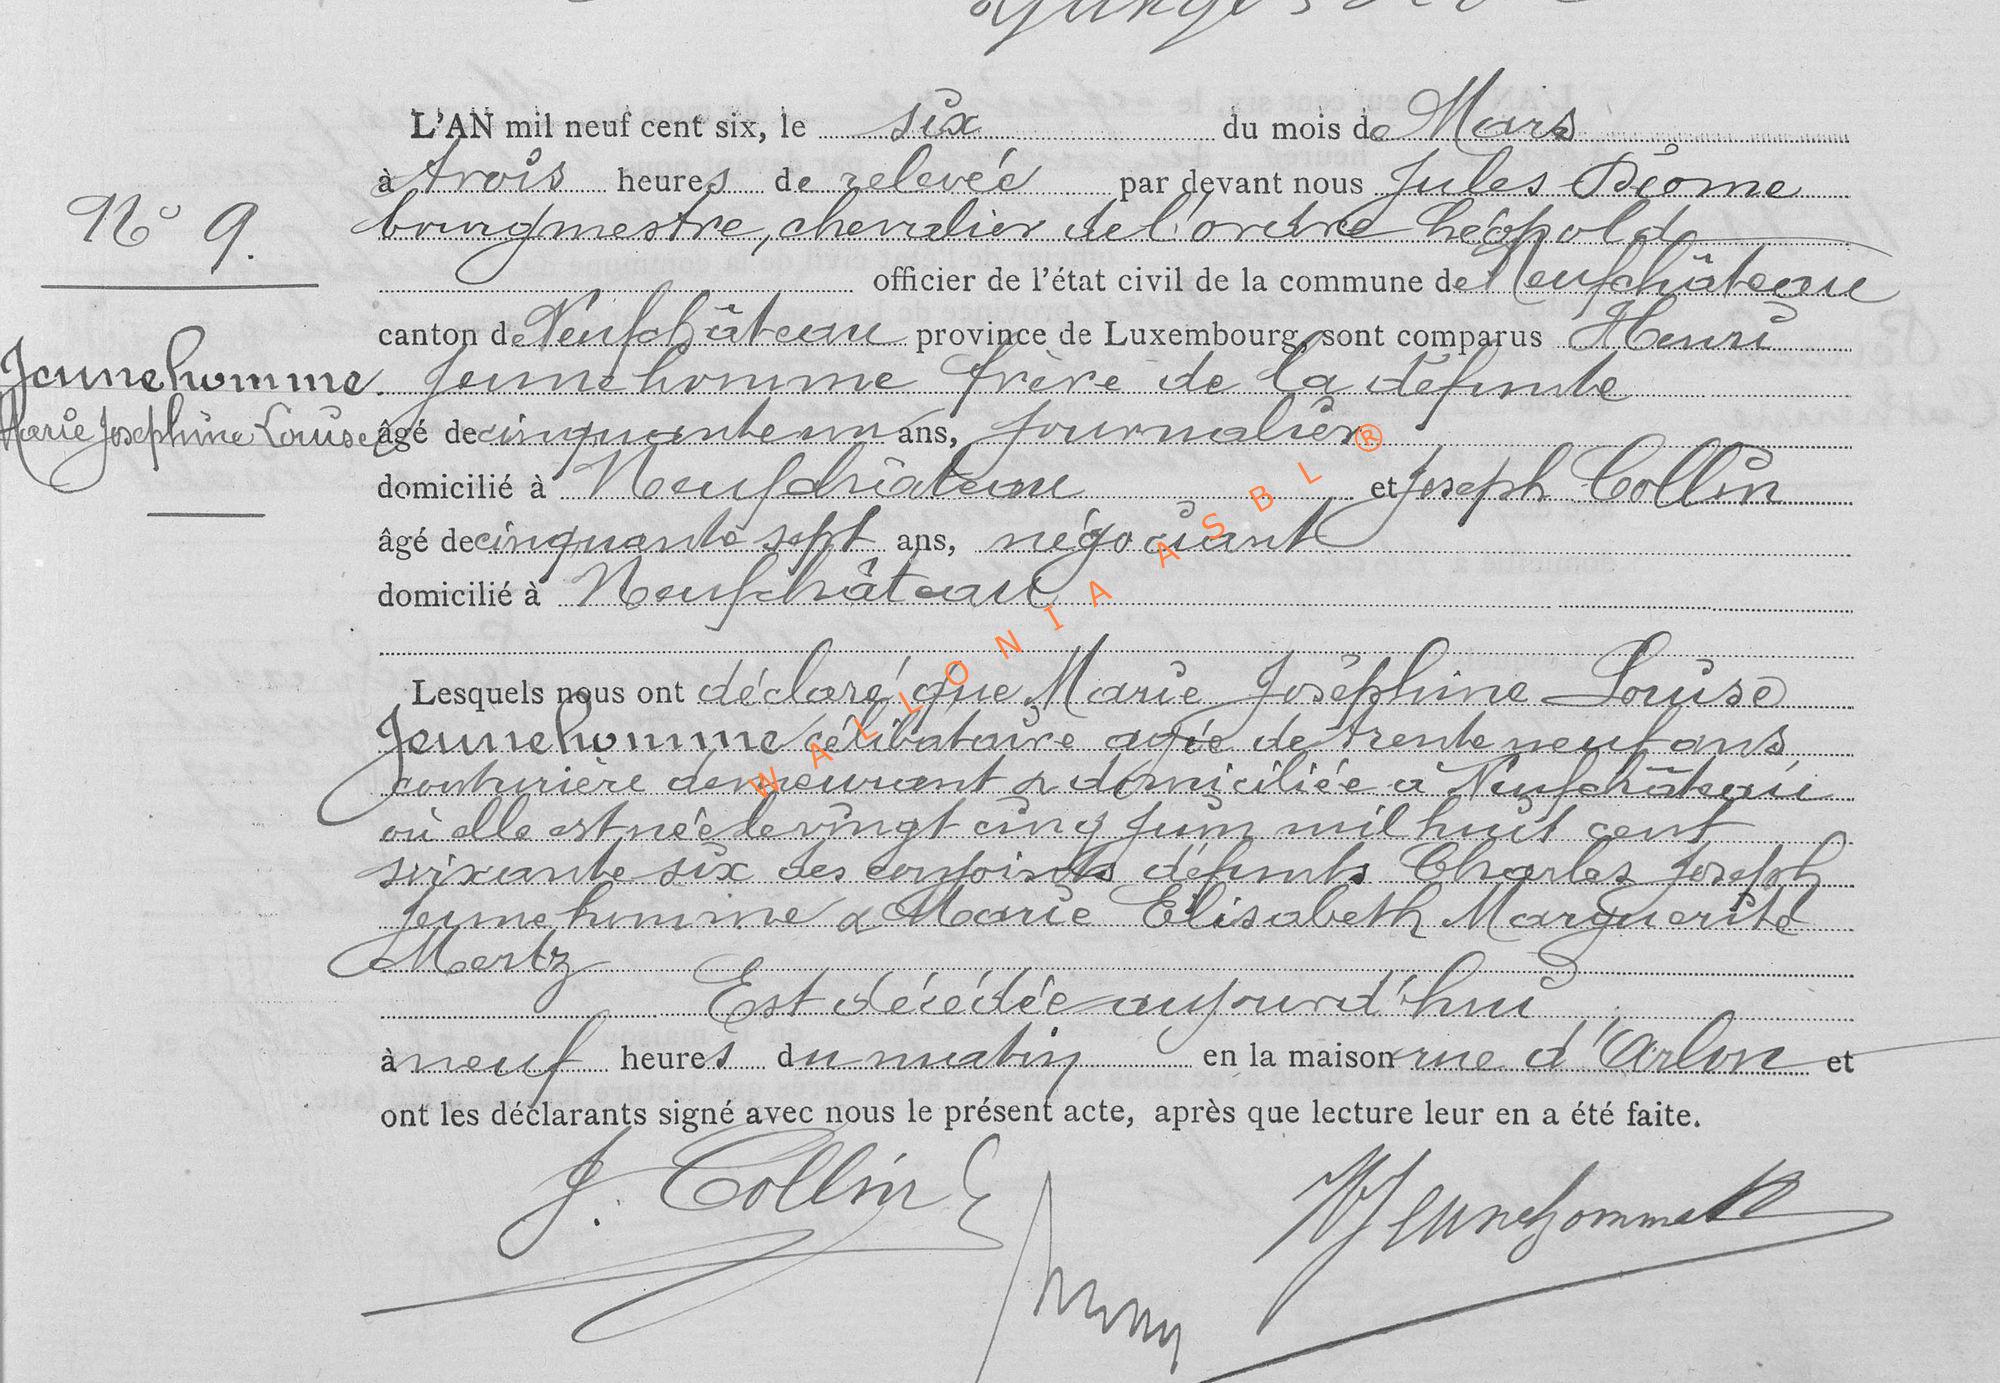 L'AN mil neuf cent six, le six du mois de Mars
à trois heures de relevée par devant nous Jules Déome
N° 9. bourgmestre, chevalier de l'ordre Léopold
officier de l'état civil de la commune de Neufchâteau
canton de Neufchâteau province de Luxembourg, sont comparus Henri
Jeunehomme Jeunehomme frère de la défunte
Marie Joséphine Louise âgé de cinquante un ans, journalier
domicilié à Neufchâteau et Joseph Collin
âgé de cinquante sept ans, négociant
domicilié à Neufchâteau
WALLONIA ASBL ®
Lesquels nous ont déclaré que Marie Joséphine Louise
Jeunehomme célibataire agée de trente neuf ans
couturière demeurant & domiciliée à Neufchâteau
où elle est née le vingt cinq juin mil huit cent
soixante six des conjoints défunts Charles Joseph
Jeunehomme & Marie Elisabeth Marguerite
Mertz
Est décédée aujourd'hui
à neuf heures du matin en la maison rue d'Arlon et
ont les déclarants signé avec nous le présent acte, après que lecture leur en a été faite.
J. Collin Jeunehomme